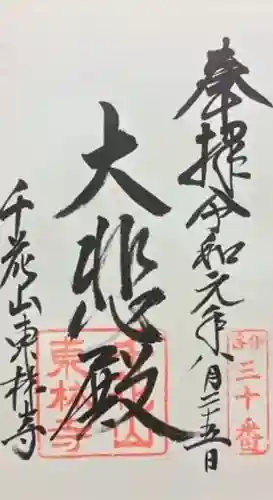 奉拝令和元年八月二十五日
三十番
大悲殿
東林寺
千花山東林寺